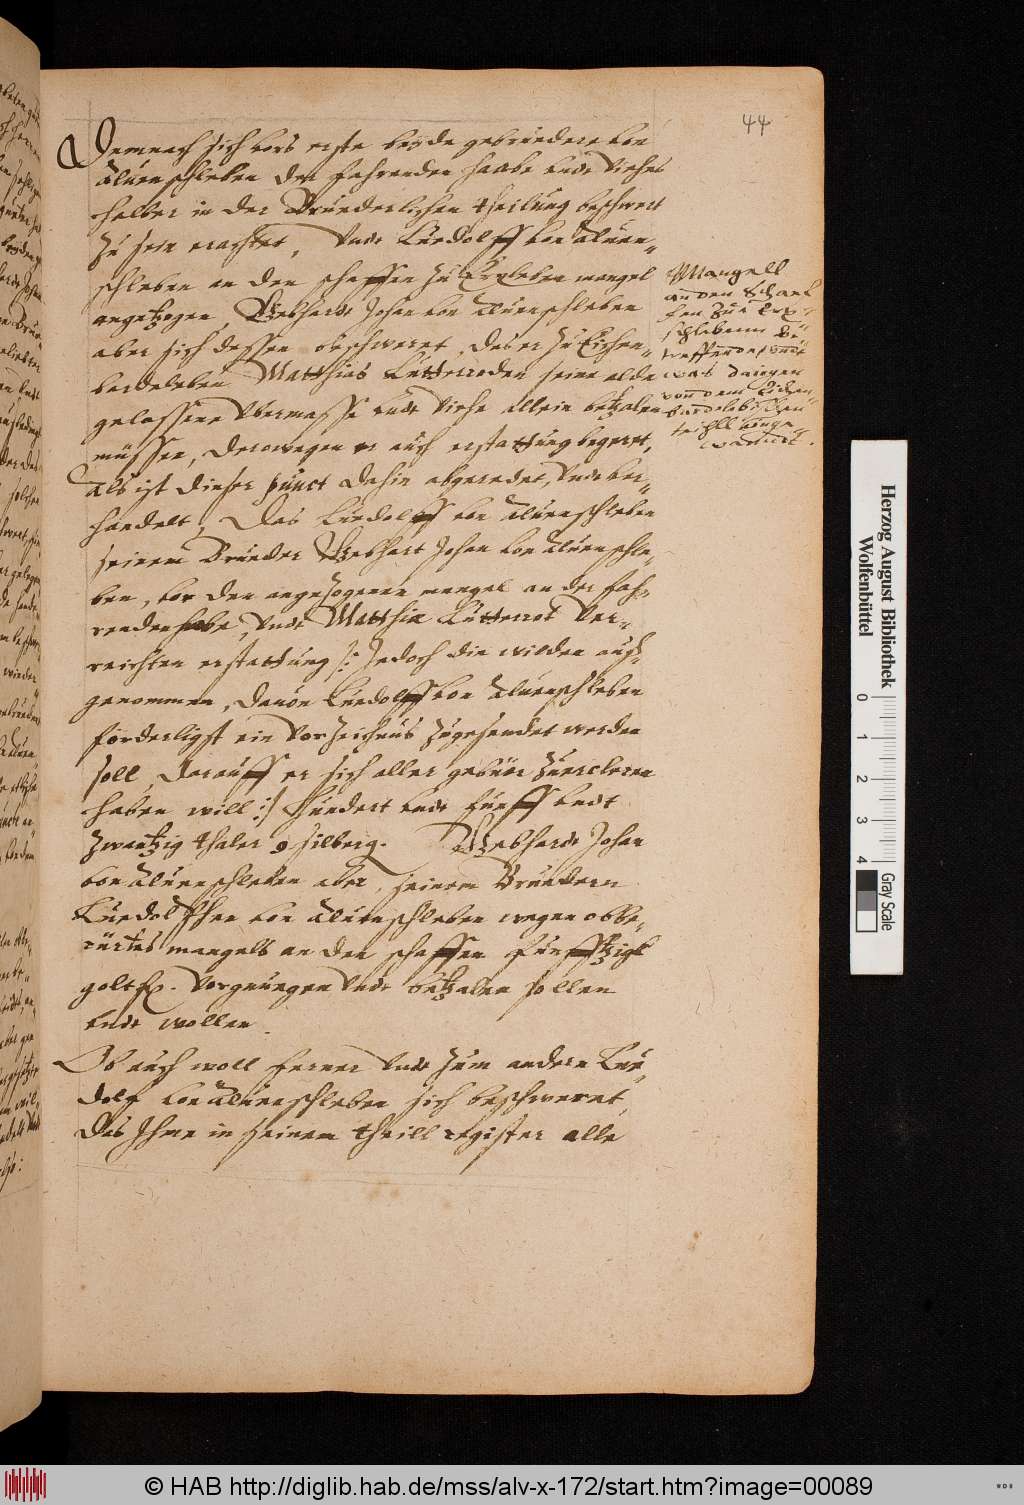 44
Demnach sich vors erste beyde gebruedere von
Aluenschleben der fahrenden haabe undt Viehes
halber in der Bruederlichen theilung beschwert
zu sein erachtet, Undt Luedolff von Aluen-
schleben an den schaffen zu Erxleben mangel
angetzogen, Gebhardt Johan von Aluenschleben
aber sich dessen beschweret, das er zu Eichen-
bardeleben Matthias Lutterroden seine alda
gelassene Vbermasse undt Viehe allein betzalen
müssen, Derowegen er auch erstattung begeret,
Als ist dieser punct dahin abgeredet, Undt ver-
handelt, Das Luedolff von Aluenschleben
seinem Brueder Gebhart Johan von Aluenschle-
ben, vor den angezogenen mangel an der fah-
renden habe, Undt Matthiae Lutterrot Ver-
reichten erstattung /: Jedoch die wilden auß-
genommen, Dauon Luedolff von Aluenschleben
förderligst ein Vorzeichnus zugesendet werden
soll, Darauff er sich aller gebüer zuercleren
haben will :/ Hundert undt Fünff undt
zwantzig thaler 9 silberg. Gebhardt Johan
von Aluenschleben aber, seinem Bruedern
Luedolffen von Aluenschleben wegen obbe-
rürtes mangels an den schaffen Fünfftzigk
goltfl. Vorgnuegen Undt betzalen sollen
undt wollen.
Ob auch woll ferner Undt zum andern Lue-
dolf von Aluenschleben sich beschweret,
Das Ihme in seinem theill register alle
Mangell
an den Schaef
fen zue Erx-
schlebenn
undt
was daiegen
von dem Eichen-
bardelebischen
teihll
Herzog August Bibliothek
Wolfenbüttel
0 1 2 3 4
Gray Scale
© HAB http://diglib.hab.de/mss/alv-x-172/start.htm?image=00089